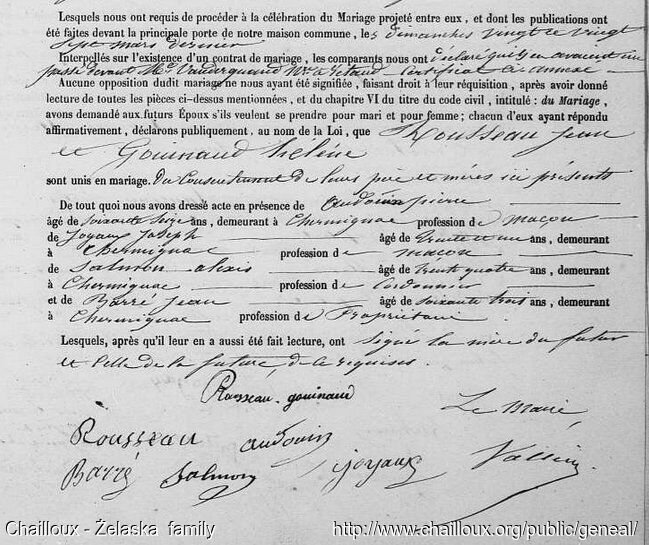 Lesquels nous ont requis de procéder à la célébration du Mariage projeté entre eux, et dont les publications ont
été faites devant la principale porte de notre maison commune, les dimanches vingt et vingt
sept mars dernier
Interpellés sur l'existence d'un contrat de mariage, les comparants nous ont déclaré qu'ils en avaient un
passé devant Me
Aucune opposition dudit mariage ne nous ayant été signifiée, faisant droit à leur réquisition, après avoir donné
lecture de toutes les pièces ci-dessus mentionnées, et du chapitre VI du titre du code civil, intitulé : du Mariage,
avons demandé aux futurs Époux s'ils veulent se prendre pour mari et pour femme; chacun d'eux ayant répondu
affirmativement, déclarons publiquement, au nom de la Loi, que Rousseau Jean
et Gouinaud hélène
sont unis en mariage. du Consentement de leurs père et mères ici présents
De tout quoi nous avons dressé acte en présence de Audouin pierre
âgé de soixante seize ans, demeurant à Chermignac profession de maçon
de Joyaux Joseph âgé de trente et un ans, demeurant
à Chermignac profession de maçon
de Salmon alexis âgé de trente quatre ans, demeurant
à Chermignac profession de Cordonnier
et de Barré Jean âgé de soixante trois ans, demeurant
à Chermignac profession de Propriétaire
Lesquels, après qu'il leur en a aussi été fait lecture, ont signé la mère du futur
et celle de la future, de ce requises.
Rousseau - gouinaud
Le Maire
Rousseau audouin
Barré Salmon joyaux
Chailloux - Želaska family http://www.chailloux.org/public/geneal/